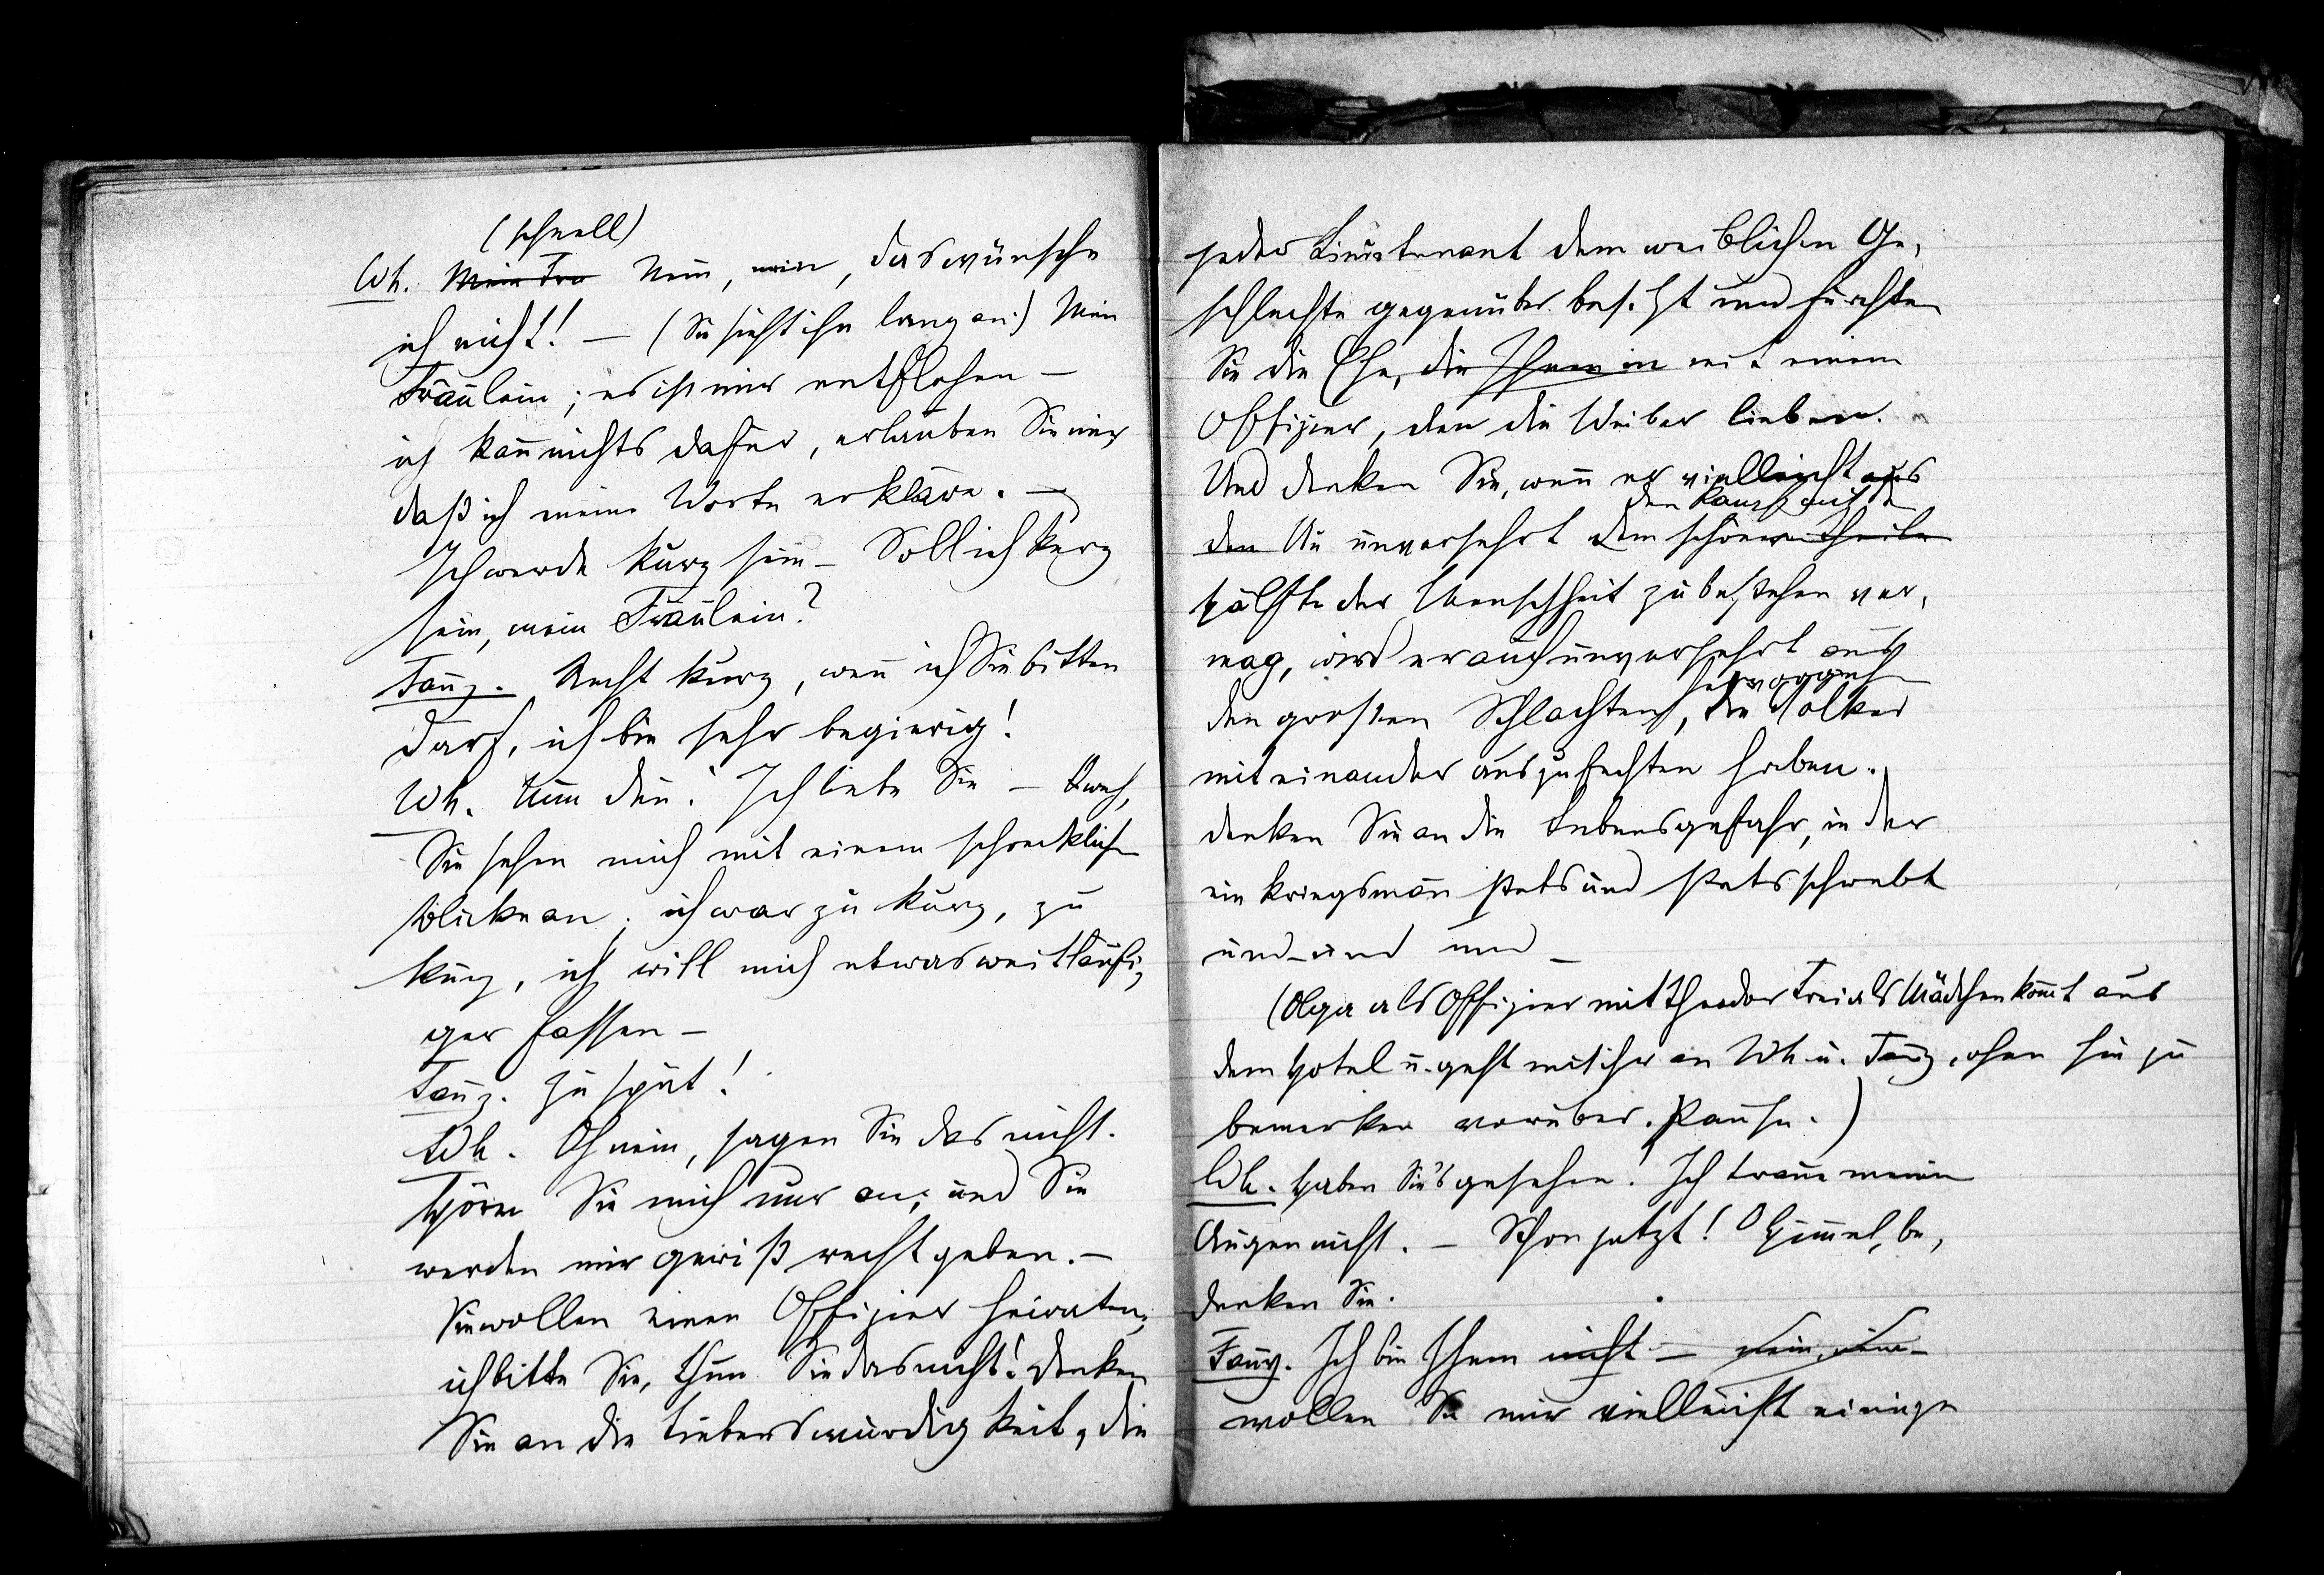 (schnell)
Wh. Mein Frä Nein, nein, das wünsche
ich nicht! — (Sie sieht ihn lang an:) Mein
Fräulein; es ist mir entflohen —
ich kann̄ nichts dafür, erlauben Sie mir
daß ich meine Worte erkläre. —
Ich werde kurz sein – Soll ich kurz
sein, mein Fräulein?
Fan̄y. Recht kurz, wen̄ ich Sie bitten
darf, ich bin sehr begierig!
Wh. Nun den̄: Ich liebe Sie – O weh,
Sie sehen mich mit einem schrecklichen
Blicke an; ich war zu kurz, zu
kurz, ich will mich etwas weitläufi,
ger fassen –
Fan̄y. Zu spät!
Wh. Oh nein, sagen Sie das nicht.
Hören Sie mich nur an, und Sie
werden mir gewiß recht geben. –
Sie wollen einen Offizier heiraten,
ich bitte Sie, thun Sie das nicht! Denken
Sie an die Liebenswürdigkeit, die
jeder Lieutenant dem weiblichen Ge,
schlechte gegenüber besitzt und fürchten
Sie die Ehe, die Ihnen in mit einem
Offizier, den die Weiber lieben.
Und denken Sie, wen̄ er vielleicht aus
den Kampf mit der
den Un unversehrt dem schönen Theile
Hälfte der Menschheit zu bestehen ver,
mag, wird er auch unversehrt aus
hervorgehen
den großen Schlachten, die Völker
mit einander auszufechten haben.
Denken Sie an die Lebensgefahr, in der
ein Kriegsman̄ stets und stets schwebt
und – und und –
(Olga als Offizier mit Theodor Frei als Mädchen kom̄t aus
dem Hotel u. geht mit ihr an Wh. u. Fan̄y, ohne sie zu
bemerken vorüber. Pause.)
Wh. Haben Sie's gesehen! Ich traue meinen
Augen nicht. – Schon jetzt! O Him̄el, be,
denken Sie.
Fan̄y. Ich bin Ihnen nicht – nein, nein –
wollen Sie mir vielleicht einige